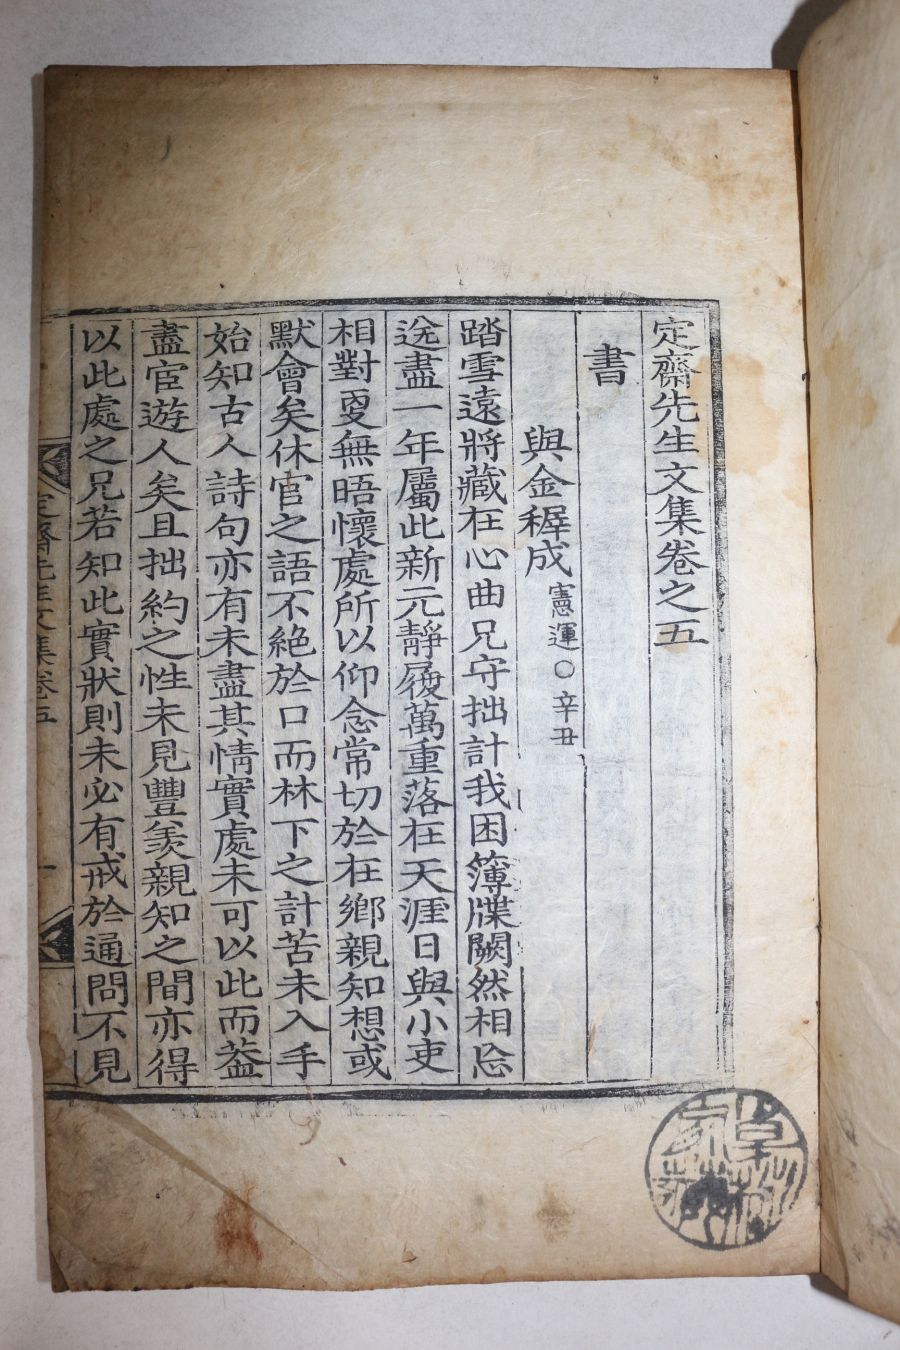 定齋先生文集卷之五
書
與金穉成憲運○辛丑
踏雪遠將藏在心曲兄守拙計我困簿牒闕然相忘
送盡一年屬此新元靜履萬重落在天涯日與小吏
相對更無晤懷處所以仰念常切於在鄕親知想或
默會矣休官之語不絶於口而林下之計苦未入手
始知古人詩句亦有未盡其情實處未可以此而葢
盡宦遊人矣且拙約之性未見豐羨親知之間亦得
以此處之兄若知此實狀則未必有戒於通問不見
定齋先生文集卷五
一